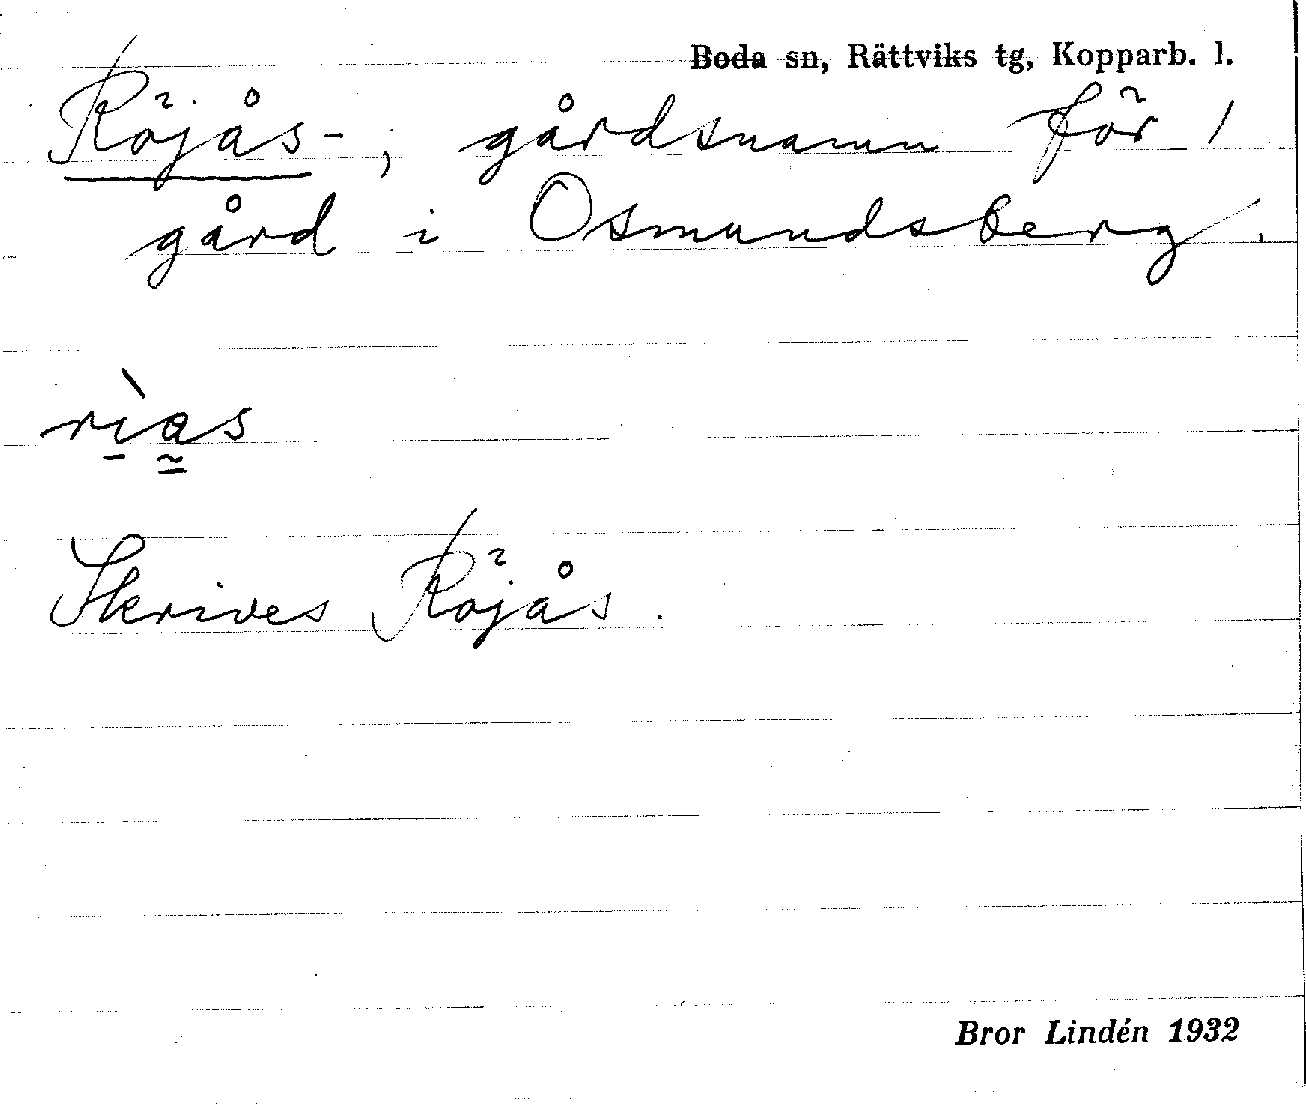 Boda sn, Rättviks tg, Kopparb. l.
Röjås-, gårdsnamn för 1
gård i Osmundsberg.
rìas
Skrives Röjås.
Bror Lindén 1932